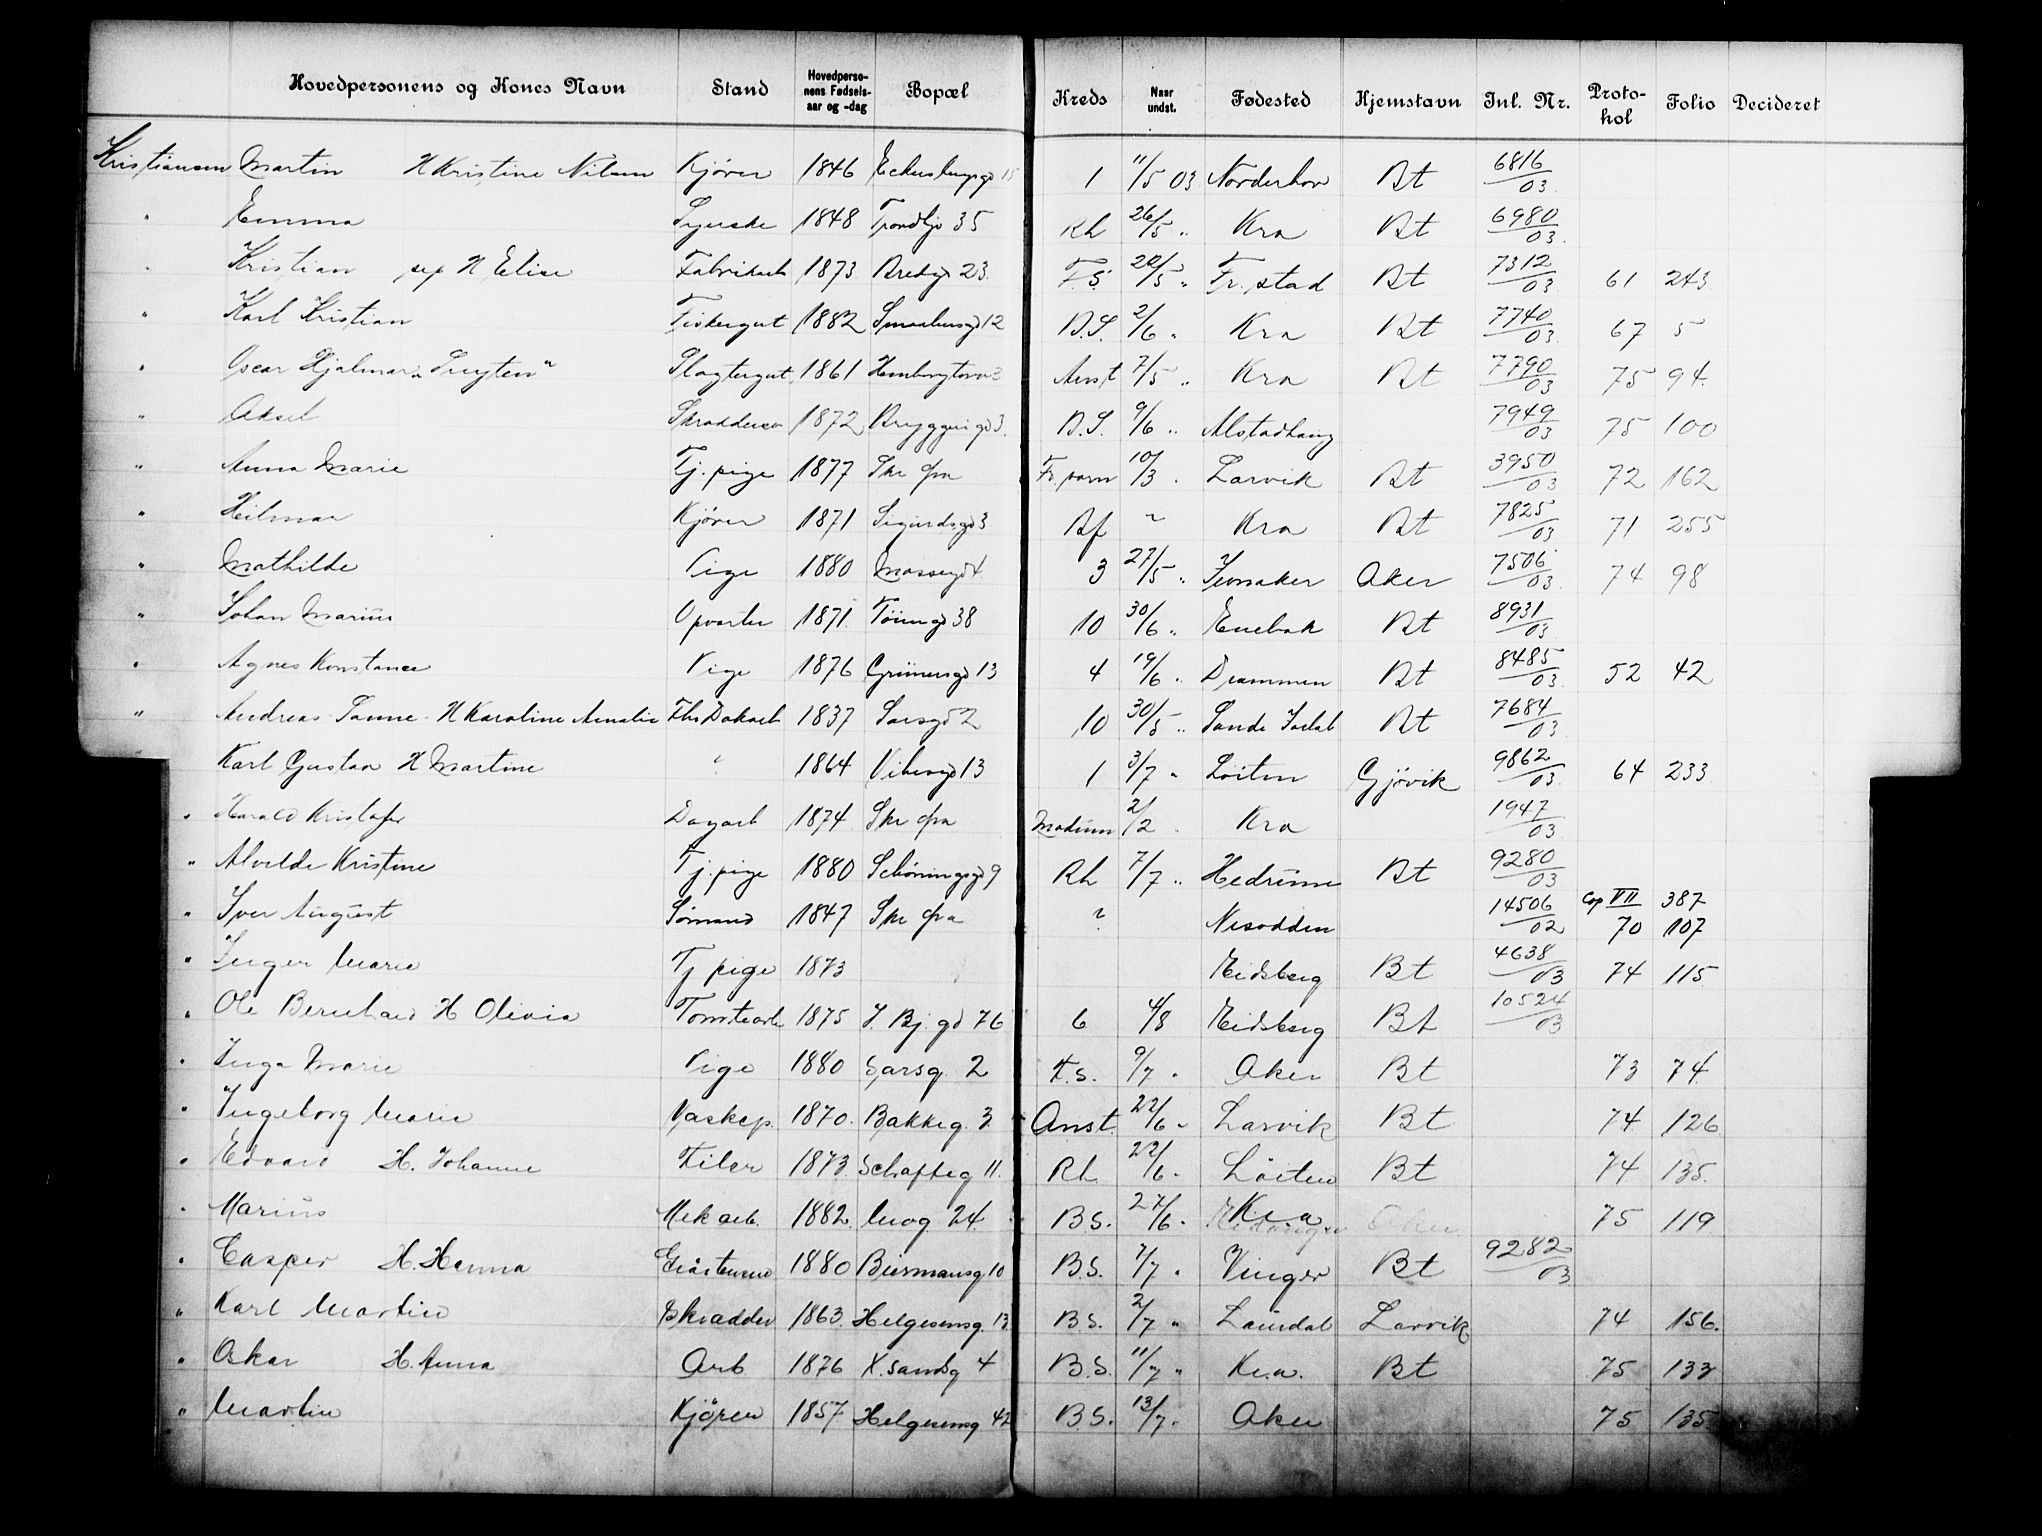 Hovedpersonens og Kones Navn Stand Hovedperso-nens Fødsels-aar og -dag Bopæl Kreds Naar undst. Fødested Hjemstavn Inl. Nr. Proto-kol Folio Decideret
Kristiansen Martin H Kristine Nilsen Kjører 1846 Eckersbergsgd 15 1 11/5 03 Norderhov Bt 6816/03
" Emma Syerske 1848 Trondhj 35 Rh 26/5 " Kra Bt 6980/03
" Kristian sep H Elise Fabrikarb 1873 Bredgd 23 F.S. 20/5 " Fr.stad Bt 7312/03 61 243
" Karl Kristian Fiskergut 1882 Smaalensgd 12 B.S. 2/6 " Kra Bt 7740/03 67 5
" Oscar Hjalmar Slagtergut 1861 Anst 7/5 " Kra Bt 7790/03 75 94
" Aksel Skræddersv 1872 Bryggerigd 3 B.S. 9/6 " Alstadhaug 7949/03 75 100
" Anna Marie Tj. pige 1877 Skr fra 10/3 " Larvik Bt 3950/03 72 162
" Hilmar Kjører 1871 Sigurdsgd 3 Bf " Kra Bt 7825/03 71 255
" Mathilde Pige 1880 Mossegd 4 3 27/5 " Jevnaker Aker 7506/03 74 98
" Johan Marius Opvarter 1871 Töiengd 38 10 30/6 " Enebak Bt 8931/03
" Agnes Konstance Pige 1876 Grünersgd 13 4 19/6 " Drammen Bt 8485/03 52 42
" Andreas H Karoline Amalie 1837 Sarsgd 2 10 30/5 " Sande Jarlsb Bt 7684/03
" Karl Gustav H Martine " 1864 Vibesgd 13 1 3/7 " Löiten Gjövik 9862/03 64 233
" Harald Kristofer Dagarb 1874 Skr fra Modum 2/2 " Kra 1947/03
" Alvilde Kristine Tj. pige 1880 Schöningsgd 9 Rh 7/7 " Hedrum Bt 9280/03
" Iver August Sømand 1847 Skr fra ? Nesodden 14506/02 Cop VII 387
70 107
" Inger Marie Tj pige 1873 Eidsberg Bt 4638/03 74 115
" Ole Bernhard H Olivia Tomtearb 1875 J. Bj. gd 76 6 4/8 Eidsberg Bt 10524/03
" Inga Marie Pige 1880 Sarsg. 2 F.S. 9/7 " Aker Bt 73 74
" Ingeborg Marie Vaskep. 1870 Bakkeg. 3 Anst. 22/6 " Larvik Bt 74 126
" Edvard H. Johanne Filer 1873 Schafteg 11. Rh 22/6 " Löiten Bt 74 135
" Marius Mek arb. 1882 Mog. 24 B.S. 27/6 " Kra 75 119
" Casper H. Hanna 1880 Biermansg 10 B.S. 7/7 " Vinger Bt 9282/03
" Karl Martin Skrædder 1863 Helgesensg. 13 B.S. 2/7 " Laurdal Larvik 74 156
" Oskar H. Anna Arb 1876 K. sandsg 4 B.S. 11/7 " Kr.a. Bt 75 133
" Martin Kjører 1857 Helgesensg 42 B.S. 13/7 " Aker 75 135